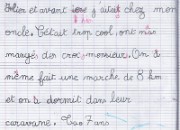 hier et avant j'étais chez mon
oncle. C'était trop cool, ont nas
mangés des croc-monsieur. On à
même fait une marche de 8 km
et on à dormit dans leur
caravane. Léo 7 ans